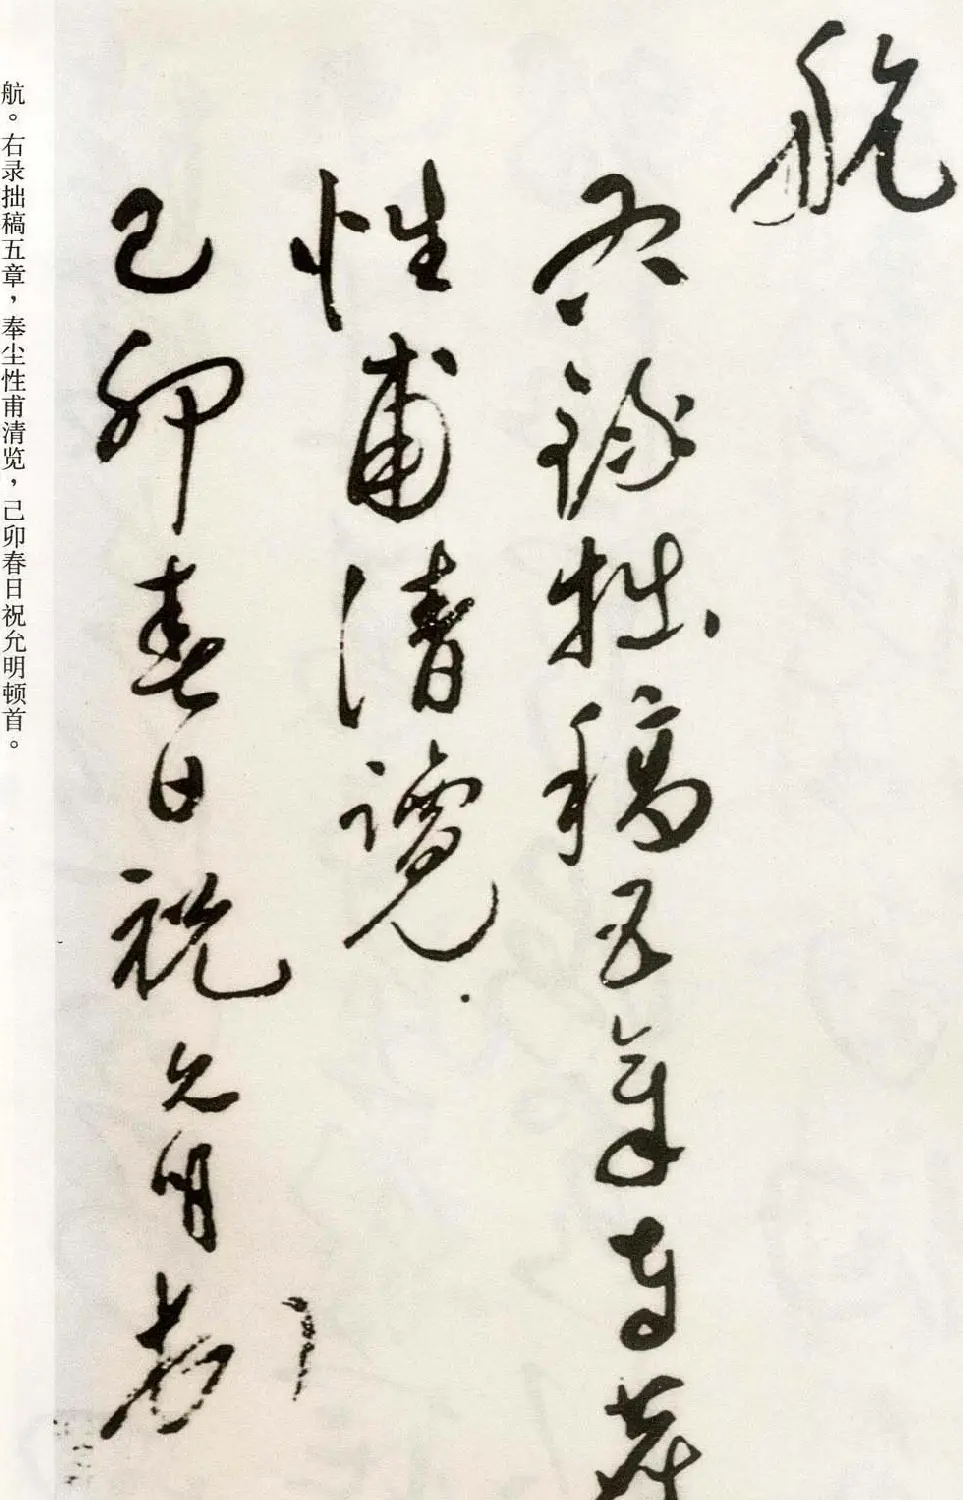 航
右錄拙稿五章奉塵
性甫清覽
己卯春日祝允明頓首
航。右录拙稿五章，奉尘性甫清览，己卯春日祝允明顿首。